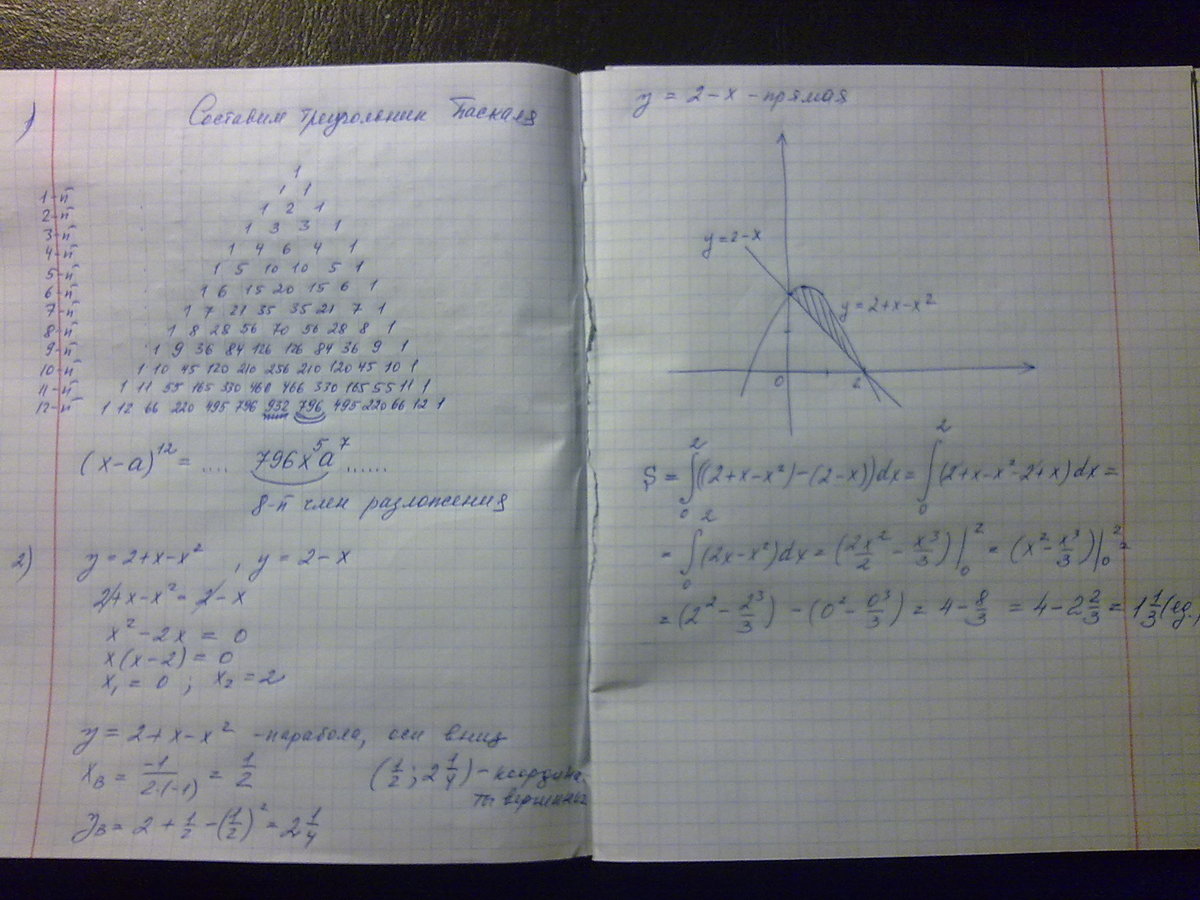 1)
Составим треугольник Паскаля
1
1-й 1 1
2-й 1 2 1
3-й 1 3 3 1
4-й 1 4 6 4 1
5-й 1 5 10 10 5 1
6-й 1 6 15 20 15 6 1
7-й 1 7 21 35 35 21 7 1
8-й 1 8 28 56 70 56 28 8 1
9-й 1 9 36 84 126 126 84 36 9 1
10-й 1 10 45 120 210 256 210 120 45 10 1
11-й 1 11 55 165 330 466 466 330 165 55 11 1
12-й 1 12 66 220 495 796 932 796 495 220 66 12 1
(x-a)^12 = .... 796x^5a^7 ......
8-й член разложения
2) y = 2+x-x^2, y = 2-x
2+x-x^2 = 2-x
x^2-2x = 0
x(x-2) = 0
x₁ = 0 ; x₂ = 2
y = 2+x-x^2 - парабола, оси вниз
x_в = -1/(2·(-1)) = 1/2 (1/2; 2 1/4) - координа-
ты вершины
y_в = 2 + 1/2 - (1/2)^2 = 2 1/4
y = 2-x - прямая
y = 2-x
y = 2+x-x^2
0 2
S = ∫₀² ((2+x-x²)-(2-x))dx = ∫₀² (2+x-x²-2+x)dx =
= ∫₀² (2x-x²)dx = (2x²/2 - x³/3)|₀² = (x² - x³/3)|₀² =
= (2² - 2³/3) - (0² - 0³/3) = 4 - 8/3 = 4 - 2 2/3 = 1 1/3 (ед.